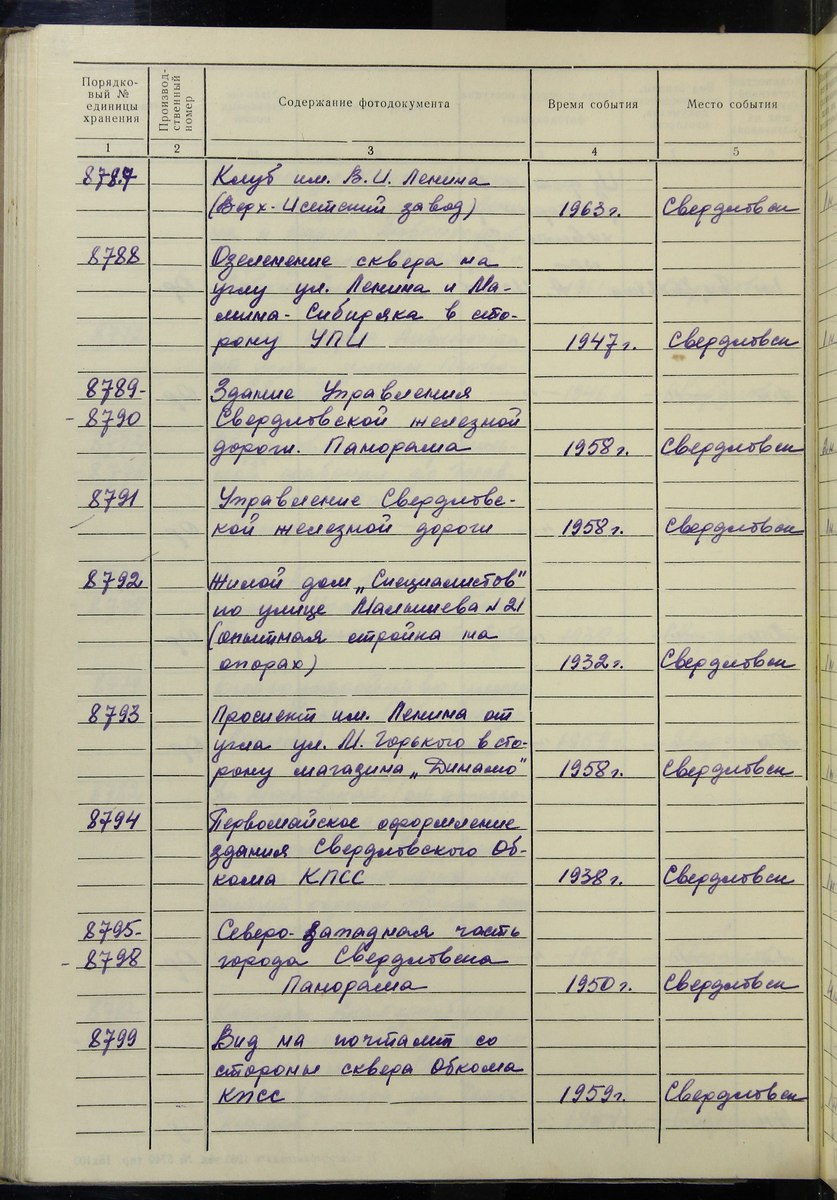 Порядко-
вый №
единицы
хранения
Производ-
ственный
номер
Содержание фотодокумента
Время события
Место события
1 2 3 4 5
8787 Клуб им. В.И. Ленина
(Верх-Исетский завод) 1963 г. Свердловск
8788 Озеленение сквера на
углу ул. Ленина и Ма-
мина-Сибиряка в сто-
рону УПИ 1947 г. Свердловск
8789- Здание Управления
- 8790 Свердловской железной
дороги. Панорама 1958 г. Свердловск
8791 Управление Свердловс-
кой железной дороги 1958 г. Свердловск
8792 Жилой дом „Специалистов"
по улице Малышева № 21
(опытная стройка на
опорах) 1932 г. Свердловск
8793 Проспект им. Ленина от
угла ул. М. Горького в сто-
рону магазина „Динамо" 1958 г. Свердловск
8794 Первомайское оформление
здания Свердловского Об-
кома КПСС 1938 г. Свердловск
8795- Северо-Западная часть
- 8798 города Свердловска
Панорама 1950 г. Свердловск
8799 Вид на почтамт со
стороны сквера Обкома
КПСС 1959 г. Свердловск